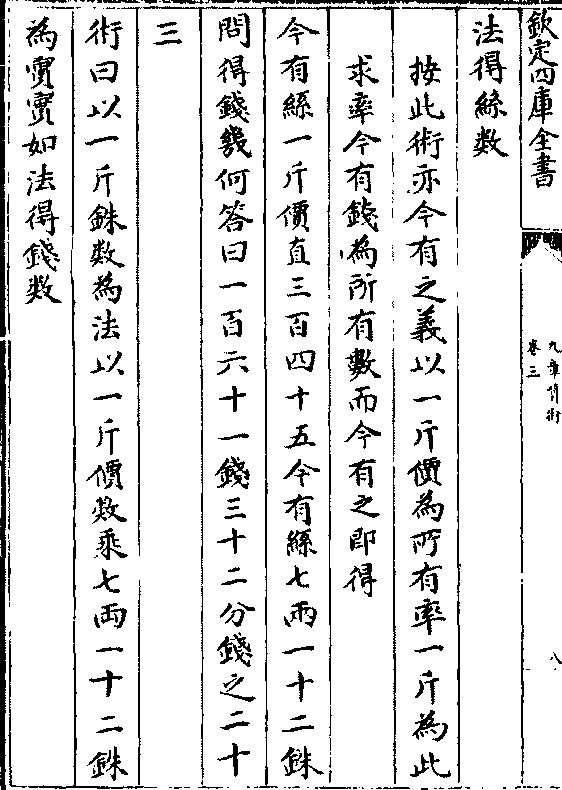 欽定四庫全書
九章算術
卷三
八
法得絲数
按此術亦今有之義以一斤價為所有率一斤為此
求率今有錢為所有數而今有之即得
今有絲一斤價直三百四十五今有絲七兩一十二銖
問得錢幾何答曰一百六十一錢三十二分錢之二十
三
術曰以一斤銖数為法以一斤價数乘七兩一十二銖
為實實如法得錢数